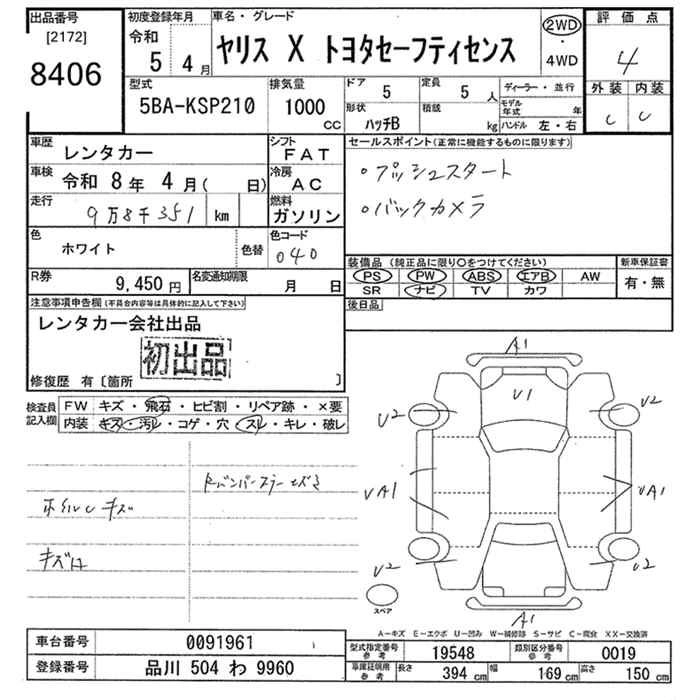 出品番号
[2172]
8406
初度登録年月
令和
5 4月
車名・グレード
ヤリス X トヨタセーフティセンス
2WD
・
4WD
評価点
4
外装 内装
C C
型式
5BA-KSP210
排気量
1000
CC
ドア
5
定員
5 人
形状
ハッチB
積載
kg
ディーラー・並行
モデル年式 年
ハンドル 左・右
車歴
レンタカー
シフト
FAT
車検
令和 8年 4月( 日)
冷房
AC
走行
9万8千351 km
燃料
ガソリン
色
ホワイト
色替
色コード
040
R券
9,450円
名変通知期限
月 日
セールスポイント(正常に機能するものに限ります)
・プッシュスタート
・バックカメラ
装備品(純正品に限り○をつけてください)
PS PW ABS エアB AW
SR ナビ TV カワ
新車保証書
有・無
後日品
注意事項申告欄(不具合内容等は具体的に記入して下さい)
レンタカー会社出品
初出品
修復歴 有〔箇所 〕
検査員記入欄
FW キズ・飛石・ヒビ割・リペア跡・×要
内装 キズ・汚レ・コゲ・穴・スレ・キレ・破レ
ホイルCキズ
キズ
A1
V1
V2 V2
VA1 VA1
V2 V2
A1
スペア
A-キズ E-エクボ U-凹み W-補修跡 S-サビ C-腐食 XX-交換済
車台番号 0091961
登録番号 品川 504 わ 9960
型式指定番号 参考 19548
類別区分番号 参考 0019
車庫証明用 参考 長さ 394 cm 幅 169 cm 高さ 150 cm